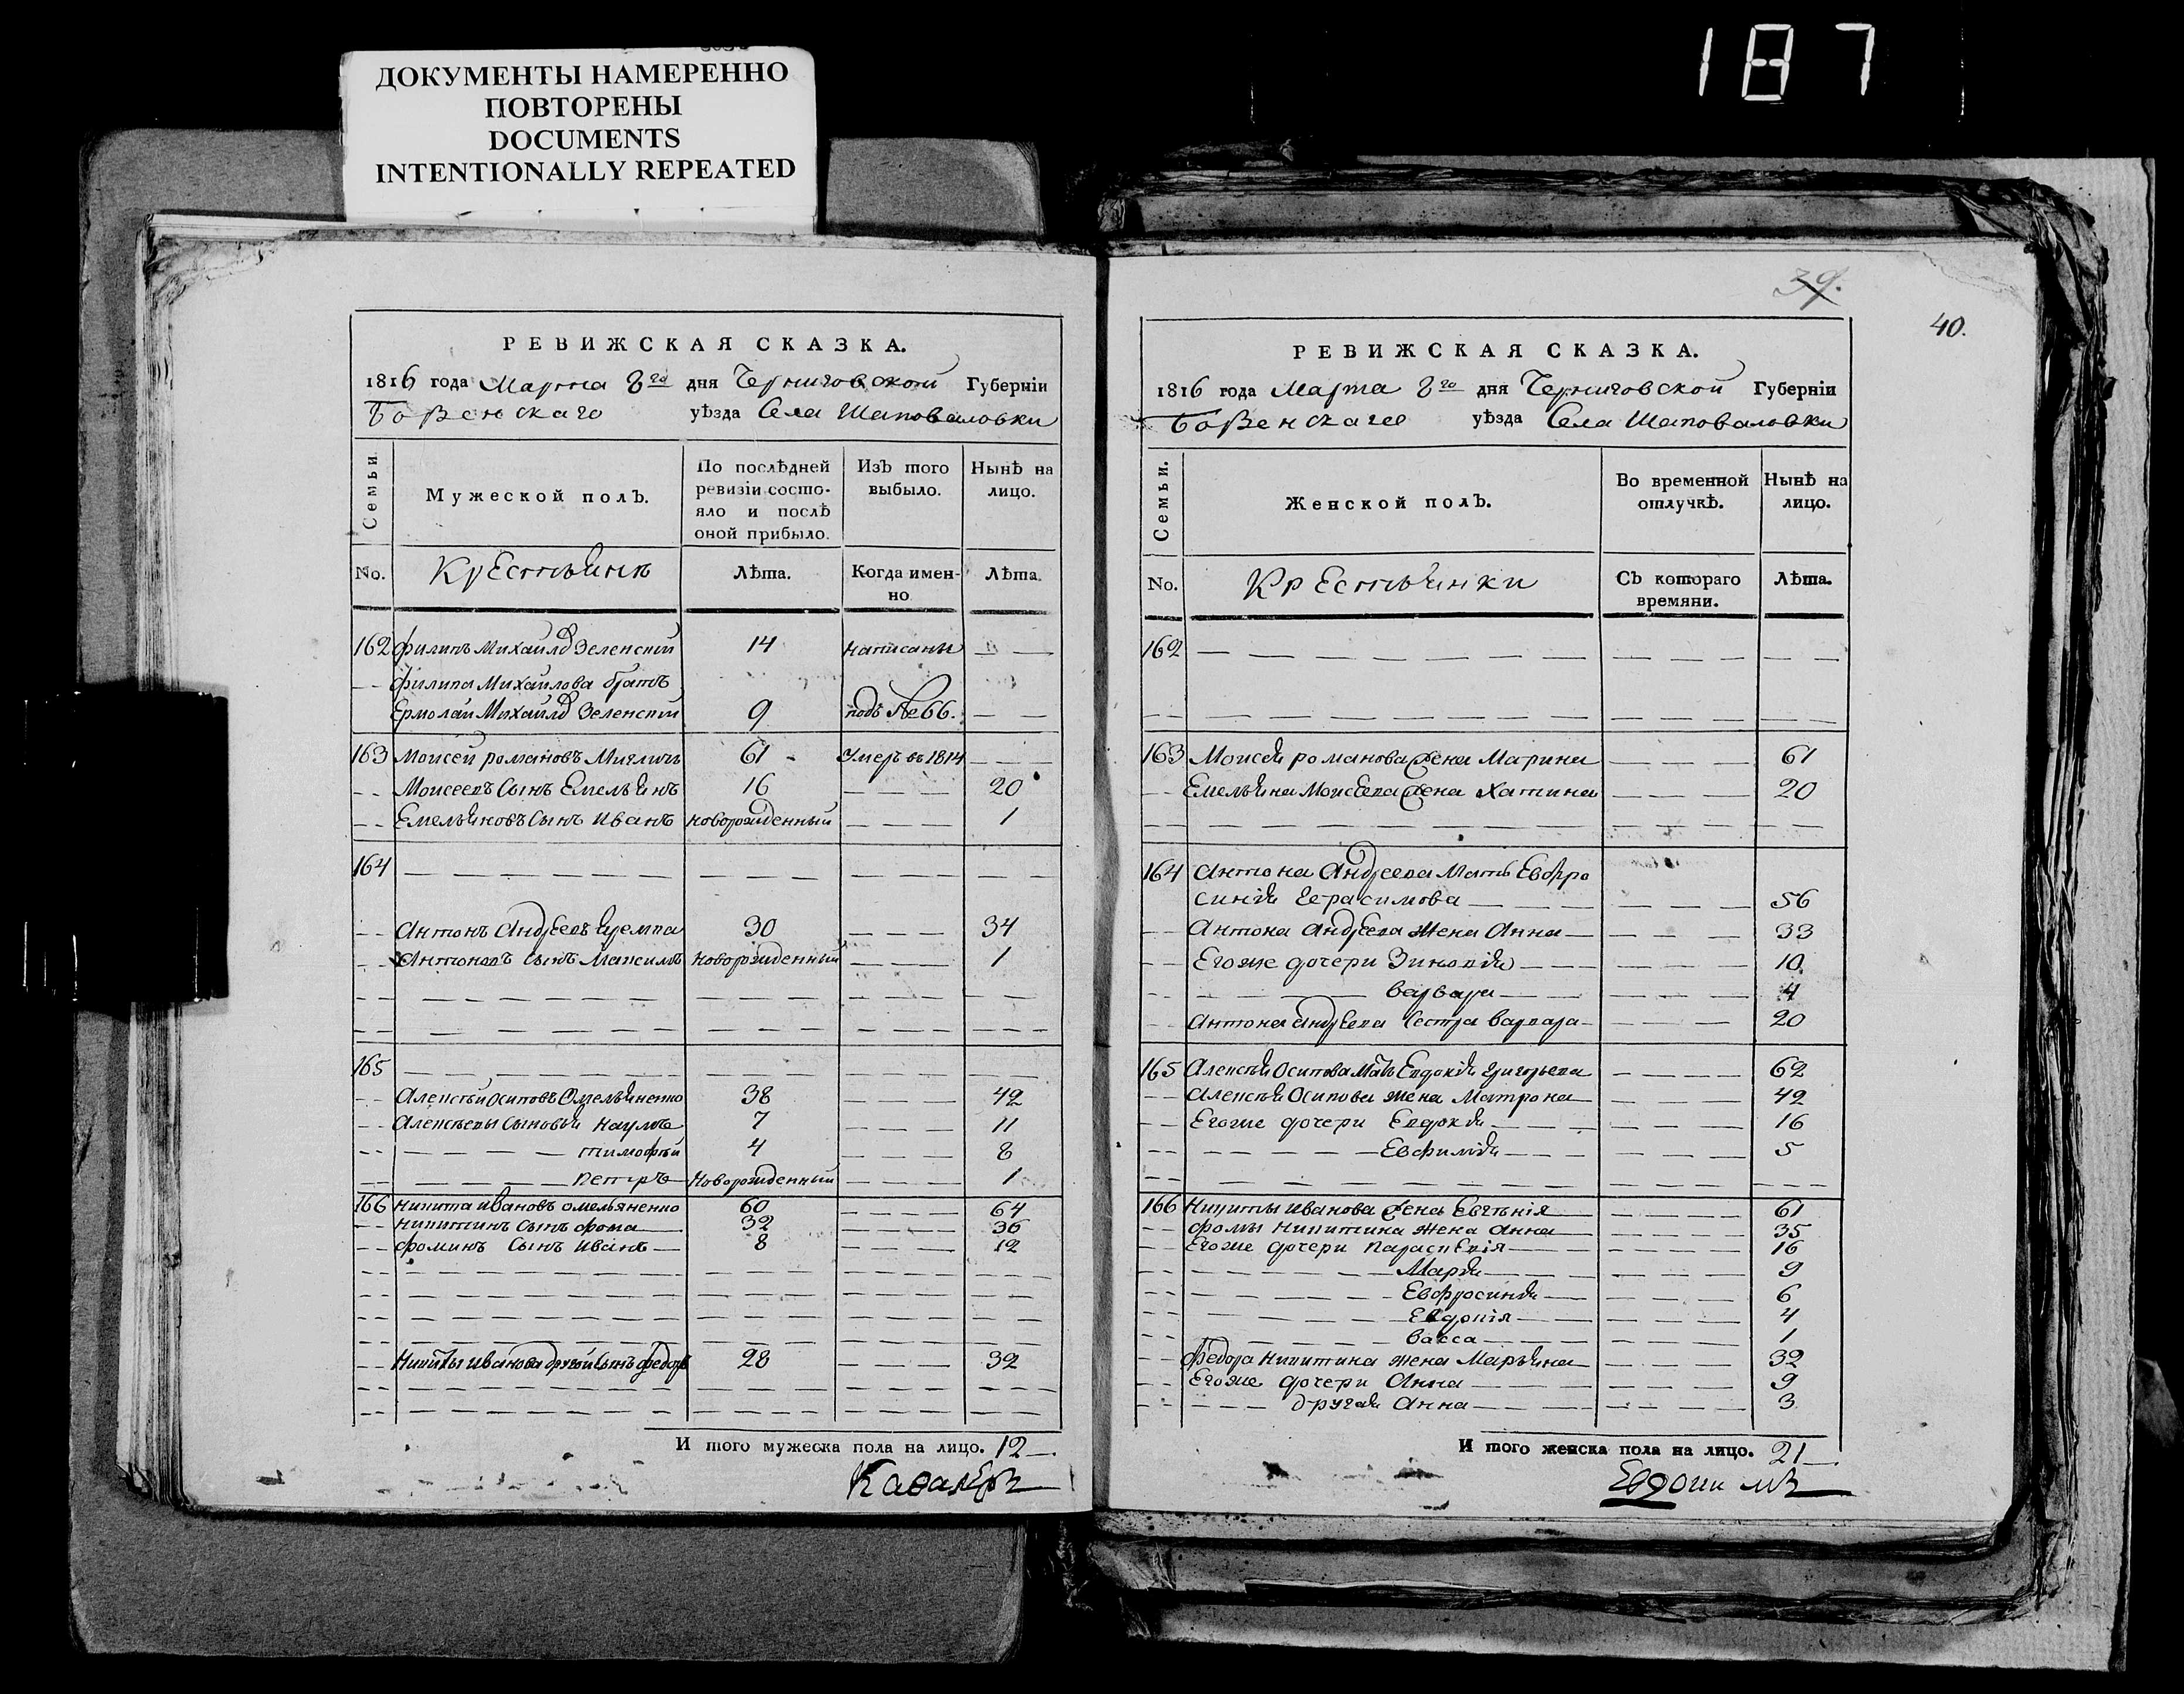 187
ДОКУМЕНТЫ НАМЕРЕННО
ПОВТОРЕНЫ
DOCUMENTS
INTENTIONALLY REPEATED
РЕВИЖСКАЯ СКАЗКА.
1816 года Марта 8го дня Черниговской Губерніи
Борзенскаго уѣзда Села Шаповаловки
Семьи
Мужеской полъ.
По послѣдней
ревизіи состо-
яло и послѣ
оной прибыло.
Изъ того
выбыло.
Нынѣ на
лицо.
No. Крестьянъ Лѣта. Когда имен-
но
Лѣта.
162 Филипъ Михайловъ Зеленскій 14 написаны
Филипа Михайлова братъ
Ермолай Михайловъ Зеленскій 9 подъ № 66.
163 Моисей романовъ 61 Умеръ въ 1814
Моисеевъ Сынъ Емельянъ 16 20
Емельяновъ Сынъ Иванъ новорожденный 1
164
Антонъ Андреевъ 30 34
Антоновъ сынъ Максимъ новорожденный 1
165
Алексѣй Осиповъ Омельяненко 38 42
Алексѣевы Сыновья Наумъ 7 11
тимофѣй 4 8
петръ Новорожденный 1
166 Никита Ивановъ омельяненко 60 64
Никитинъ Сынъ фома 32 36
фоминъ Сынъ Иванъ 8 12
Никиты Иванова другой Сынъ федоръ 28 32
И того мужеска пола на лицо. 12
Кавалеръ
39.
40.
РЕВИЖСКАЯ СКАЗКА.
1816 года Марта 8го дня Черниговской Губерніи
Борзенскаго уѣзда Села Шаповаловки
Семьи.
Женской полъ.
Во временной
отлучкѣ.
Нынѣ на
лицо.
No. Крестьянки Съ котораго
времяни.
Лѣта.
162
163 Моисея романова жена Марина 61
Емельяна Моисеева жена 20
164 Антона Андреева Мать Евфро
синія Герасимова 56
Антона Андреева жена Анна 33
Егоже дочери Зиновія 10
Варвара 4
Антона Андреева Сестра Варвара 20
165 Алексѣя Осипова Мать Евдокія Григорьева 62
Алексѣя Осипова жена Матрона 42
Егоже дочери Евдокія 16
Евфимія 5
166 Никиты Иванова жена Евгенія 61
фомы Никитина жена Анна 35
Егоже дочери Параскевія 16
Марія 9
Евфросинія 6
Евдокія 4
Васса 1
федора Никитина жена Марьяна 32
Егоже дочери Анна 9
другая Анна 3
И того женска пола на лицо. 21